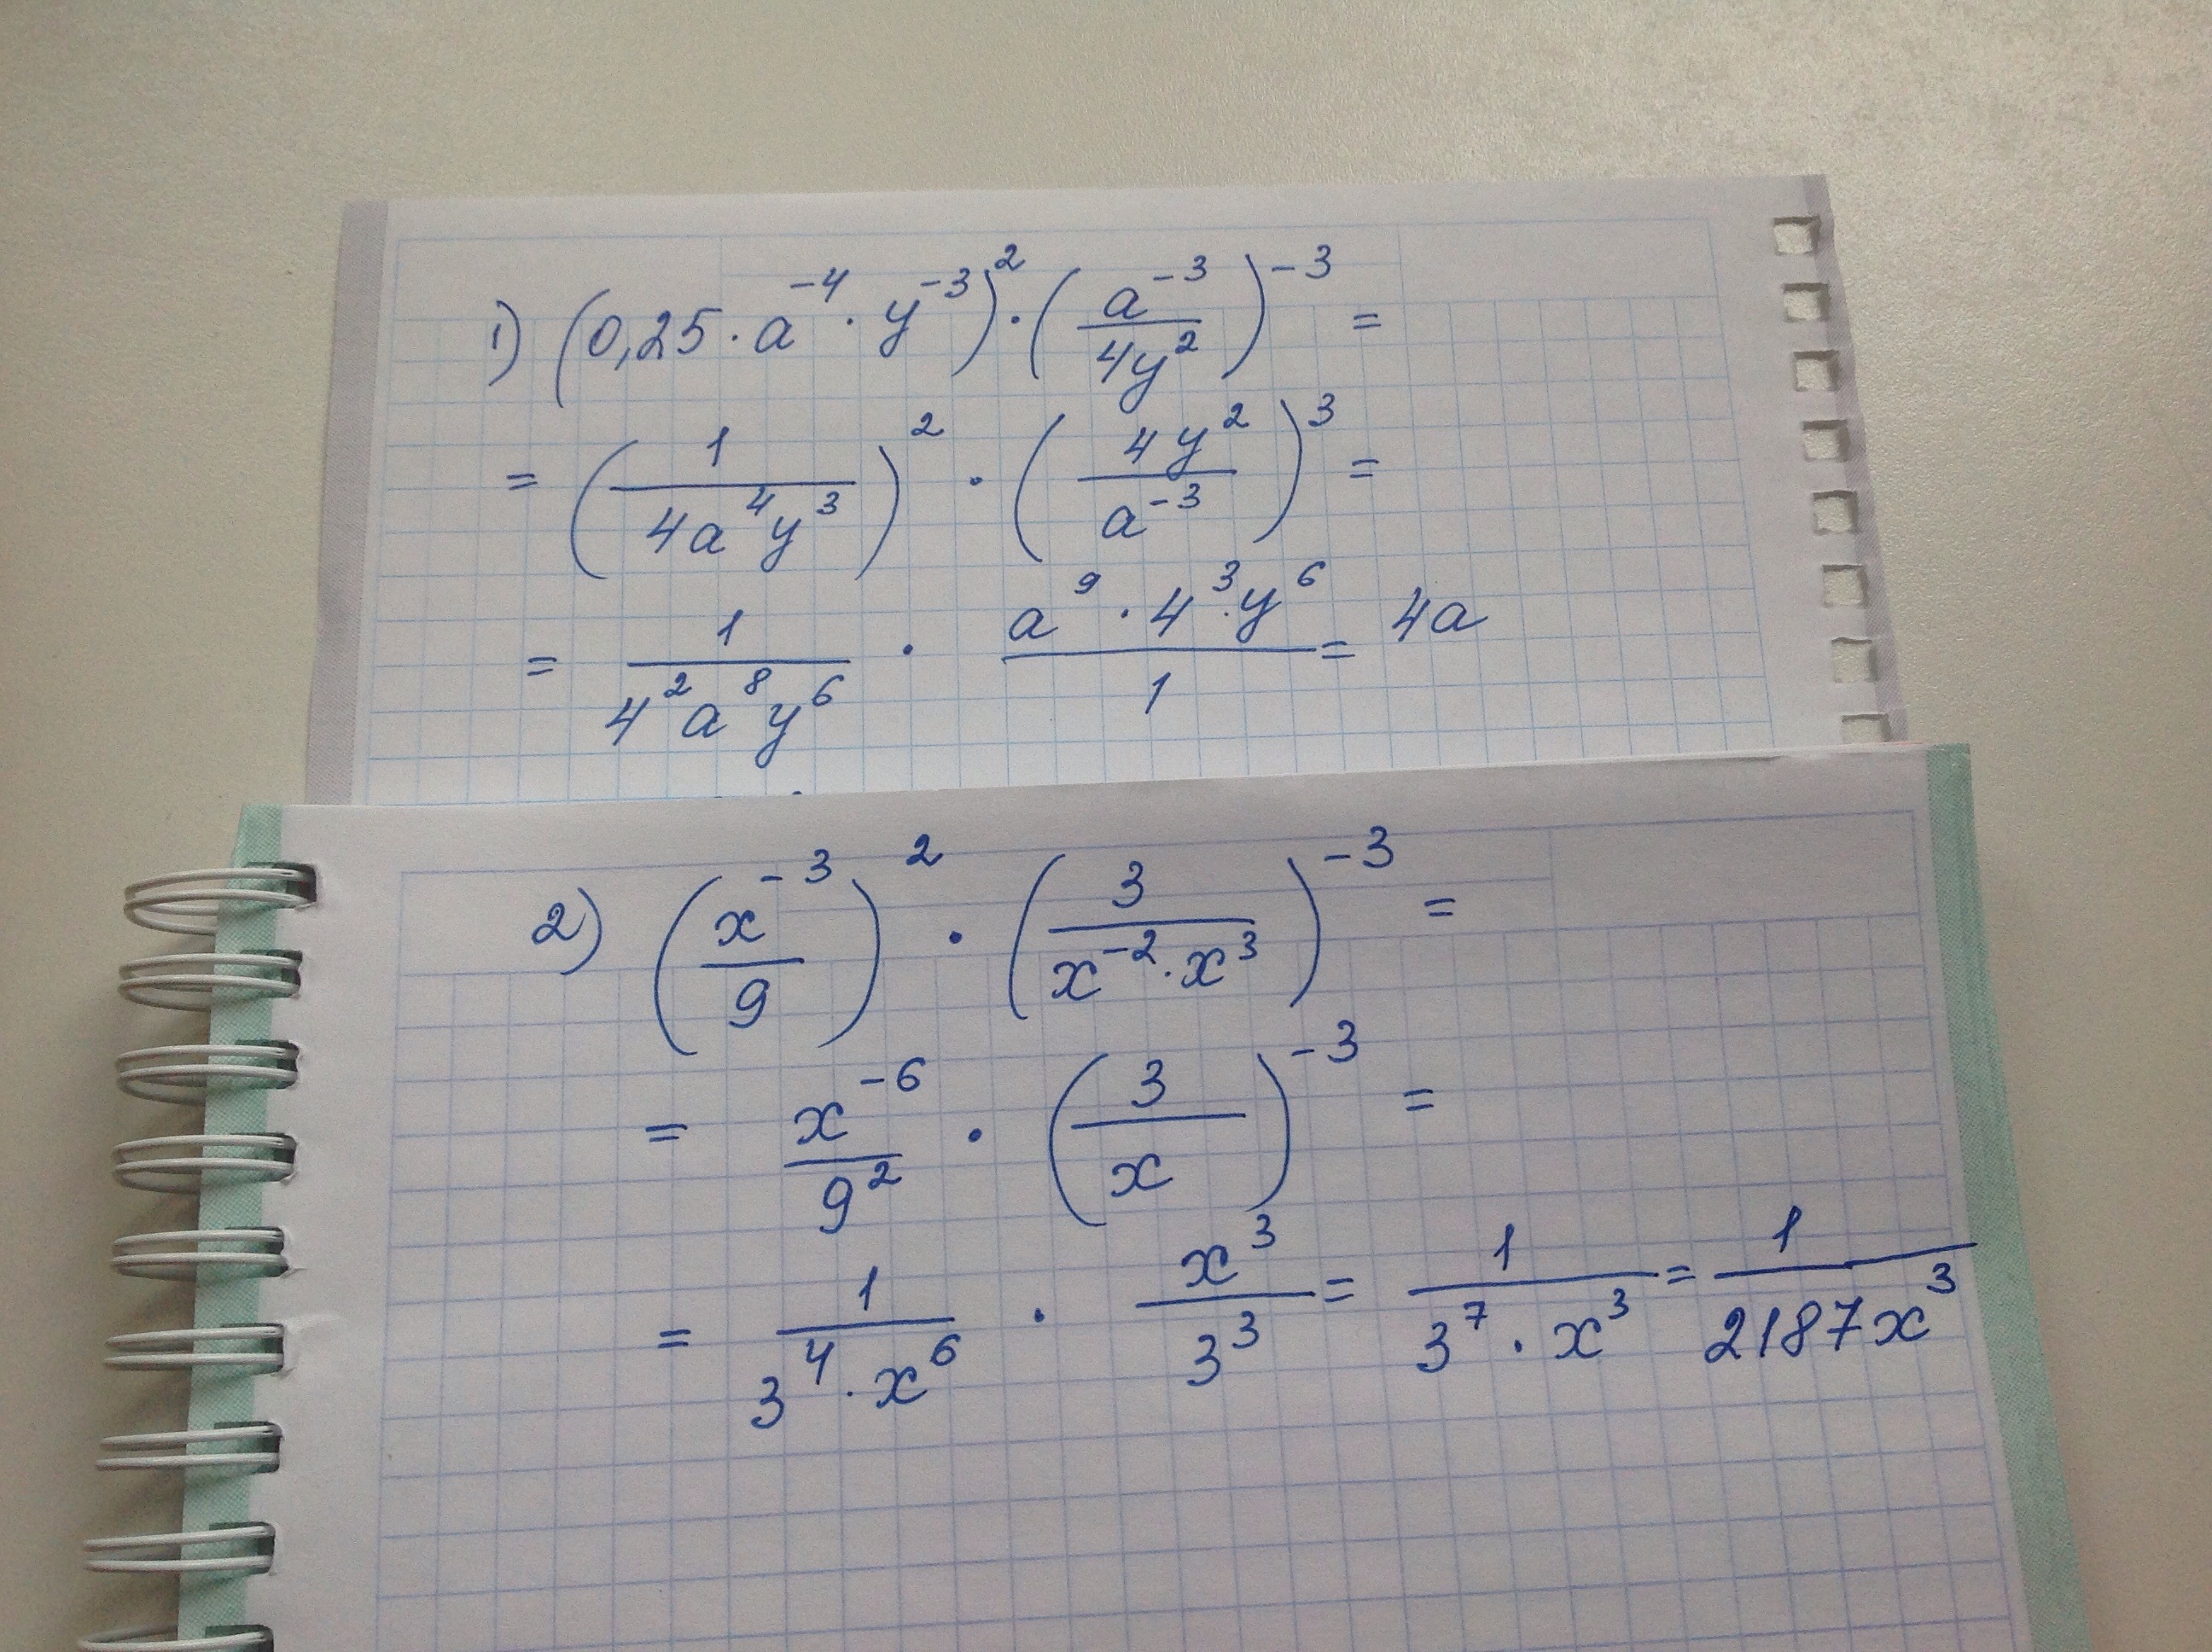 1) (0,25 · a⁻⁴ · y⁻³)² · (a⁻³/4y²)⁻³ =
= (1/4a⁴y³)² · (4y²/a⁻³)³ =
= 1/4²a⁸y⁶ · a⁹ · 4³ · y⁶/1 = 4a
2) (x⁻³/9)² · (3/x⁻² · x³)⁻³ =
= x⁻⁶/9² · (3/x)⁻³ =
= 1/3⁴ · x⁶ · x³/3³ = 1/3⁷ · x³ = 1/2187x³